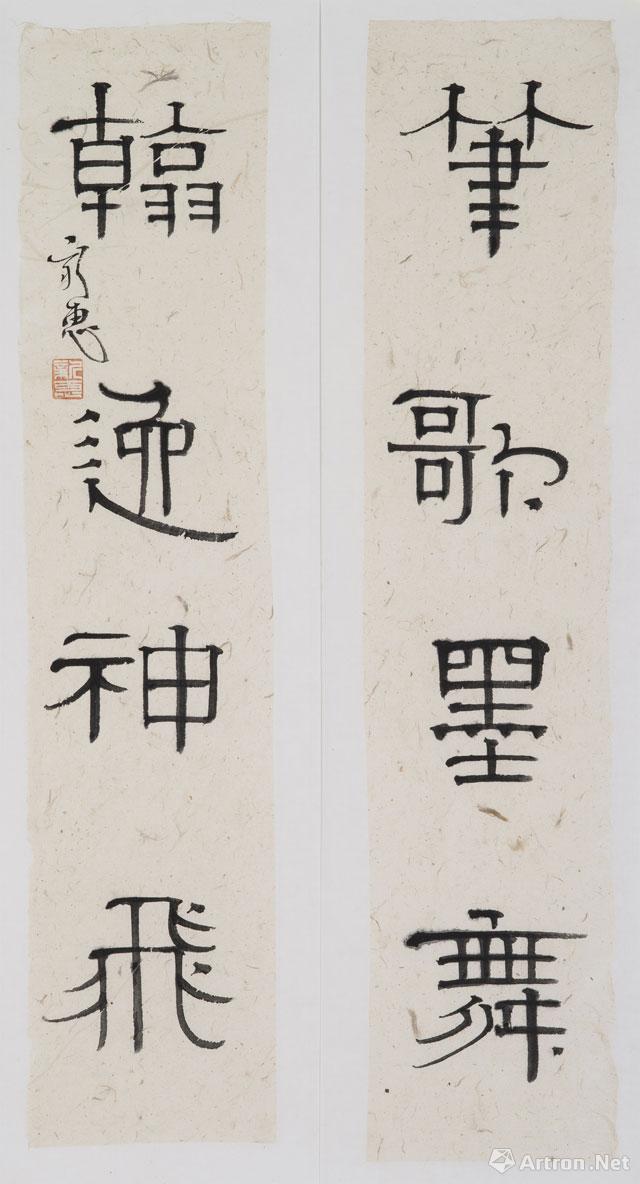 筆歌墨舞
翰逸神飛
惠
Artron.Net